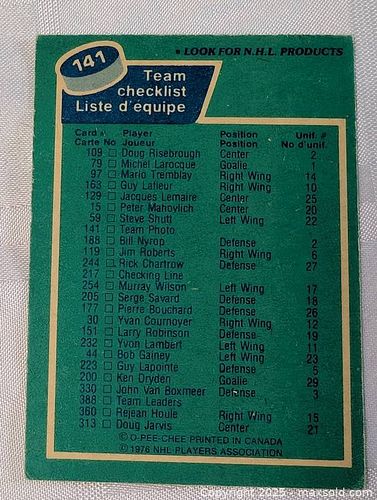 141
• LOOK FOR N.H.L. PRODUCTS
Team
checklist
Liste d'équipe
Card # Player Position Unif. #
Carte No Joueur Position No d'unif.
109 □ Doug Risebrough Center 2
79 □ Michel Larocque Goalie 1
97 □ Mario Tremblay Right Wing 14
163 □ Guy Lafleur Right Wing 10
129 □ Jacques Lemaire Center 25
15 □ Peter Mahovlich Center 20
59 □ Steve Shutt Left Wing 22
141 □ Team Photo
188 □ Bill Nyrop Defense 2
119 □ Jim Roberts Right Wing 6
244 □ Rick Chartrow Defense 27
217 □ Checking Line
254 □ Murray Wilson Left Wing 17
205 □ Serge Savard Defense 18
177 □ Pierre Bouchard Defense 26
30 □ Yvan Cournoyer Right Wing 12
151 □ Larry Robinson Defense 19
232 □ Yvon Lambert Left Wing 11
44 □ Bob Gainey Left Wing 23
223 □ Guy Lapointe Defense 5
200 □ Ken Dryden Goalie 29
330 □ John Van Boxmeer Defense 3
388 □ Team Leaders
360 □ Rejean Houle Right Wing 15
313 □ Doug Jarvis Center 21
© O-PEE-CHEE PRINTED IN CANADA
© 1976 NHL PLAYERS ASSOCIATION
Copyright 2025 - maxsold.com